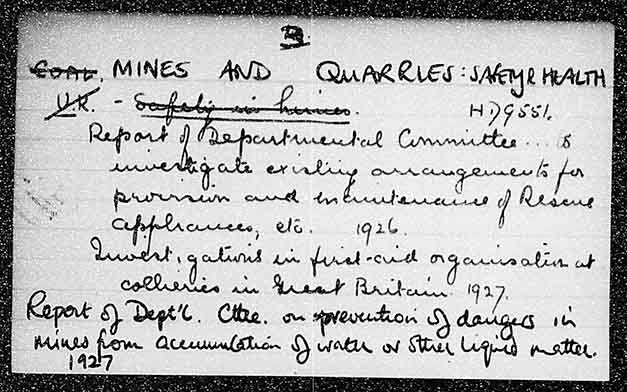 3
COAL. MINES AND QUARRIES: SAFETY & HEALTH
U.K. - Safety in mines. HD9551.
Report of Departmental Committee... to
investigate existing arrangements for
provision and maintenance of Rescue
appliances, etc. 1926.
Investigations in first-aid organisation at
collieries in Great Britain. 1927.
Report of Dept'l. Cttee. on prevention of dangers in
mines from accumulation of water or other liquid matter.
1927